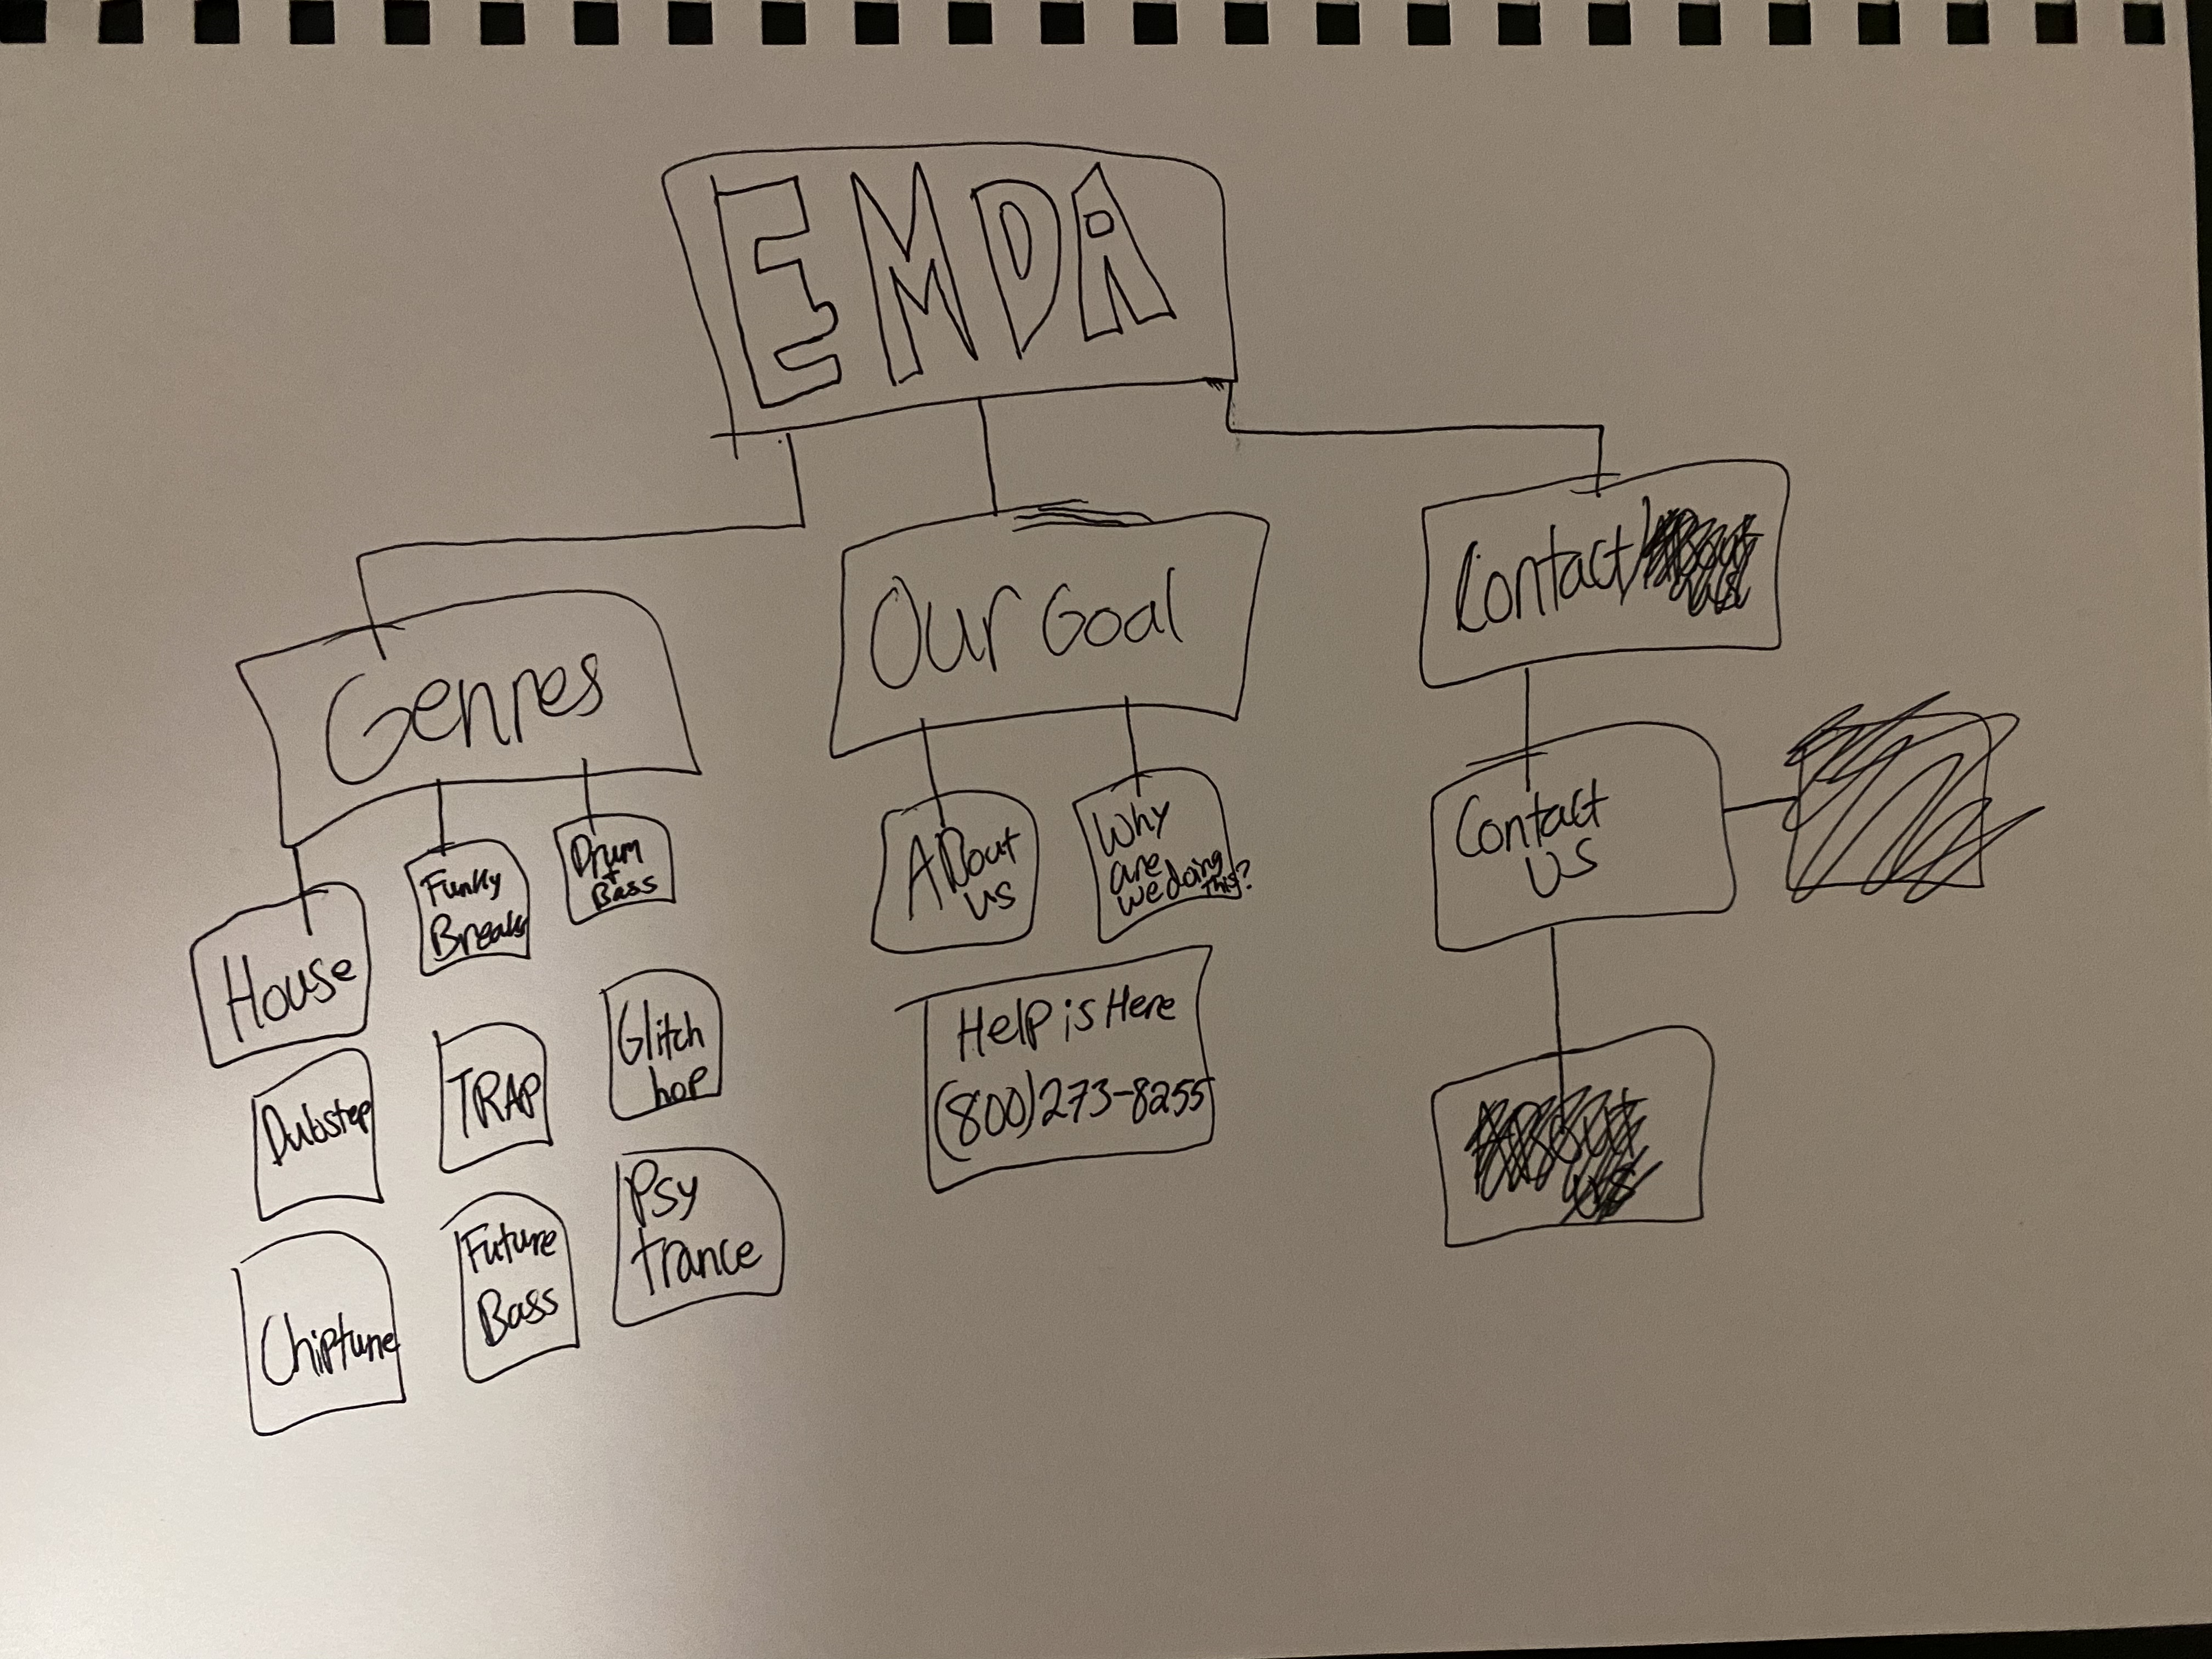 EMPA
Genres
House
Funky
Breaks
Drum
+
Bass
Dubstep
TRAP
Glitch
hop
Chiptune
Future
Bass
Psy
Trance
Our Goal
About
us
Why
are
we doing
this?
Help is Here
(800)273-8255
Contact/
Contact
Us